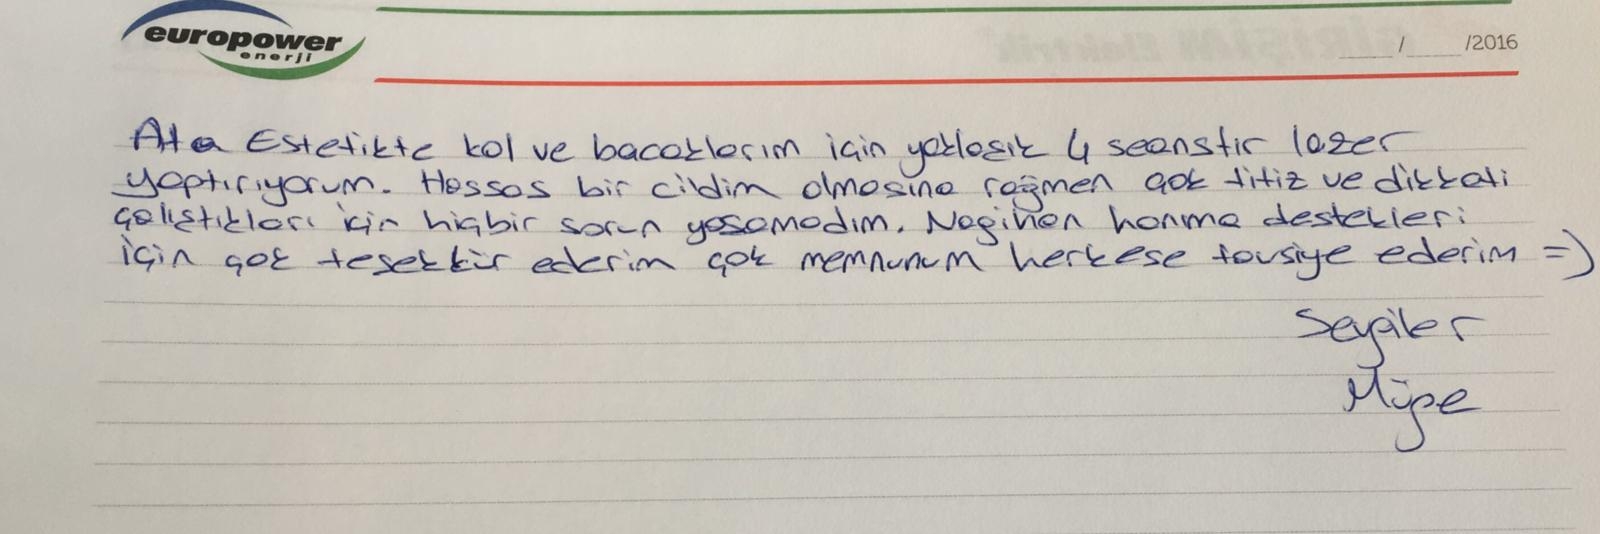 europower
enerji
/ /2016
Ata Estetikte kol ve bacaklarım için yaklaşık 4 seanstır lazer
yaptırıyorum. Hassas bir cildim olmasına rağmen çok titiz ve dikkatli
çalıştıkları için hiçbir sorun yaşamadım. Nagihan hanıma destekleri
için çok teşekkür ederim çok memnunum herkese tavsiye ederim =)
Sevgiler
Müge